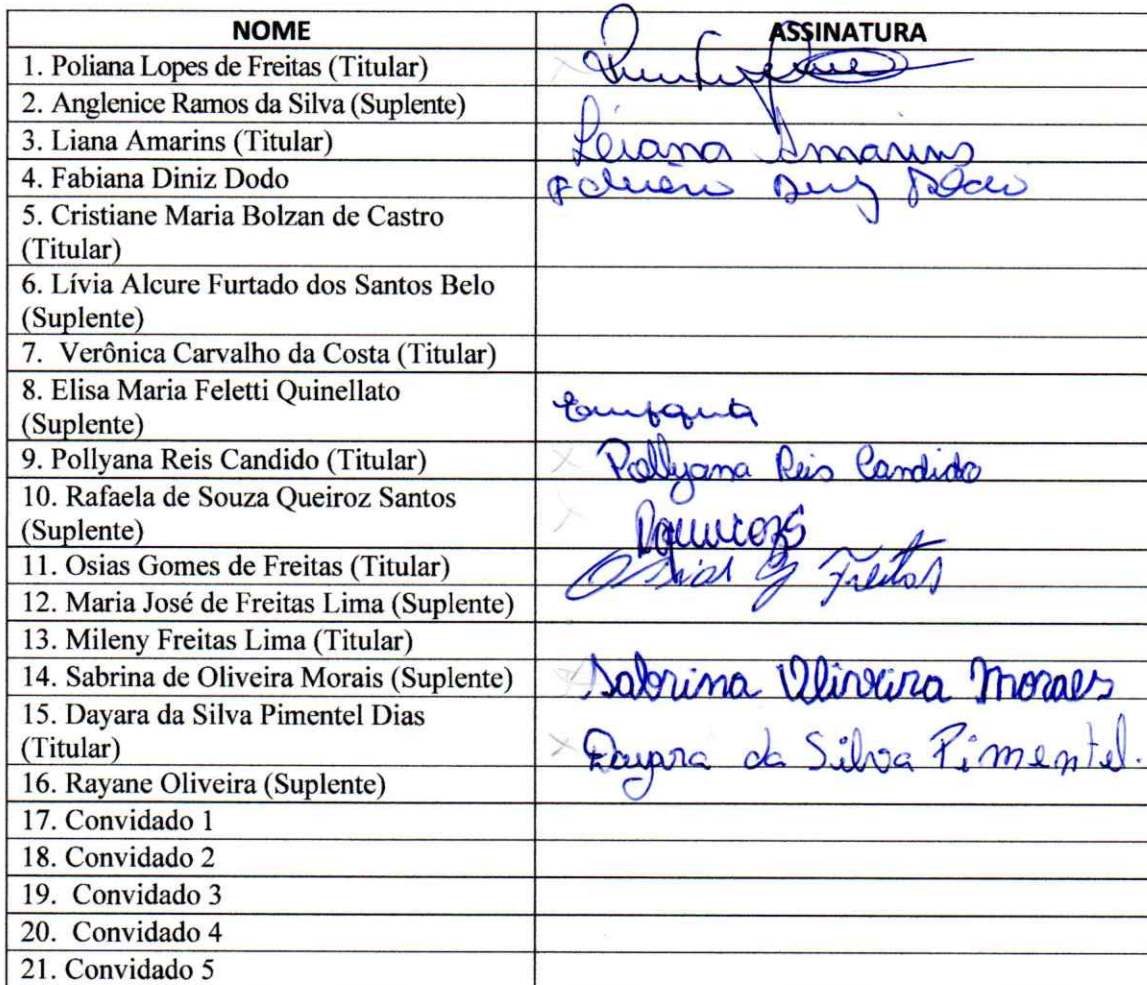 NOME ASSINATURA
1. Poliana Lopes de Freitas (Titular)
2. Anglenice Ramos da Silva (Suplente)
3. Liana Amarins (Titular) Leiana Amarins
4. Fabiana Diniz Dodo
5. Cristiane Maria Bolzan de Castro
(Titular)
6. Lívia Alcure Furtado dos Santos Belo
(Suplente)
7. Verônica Carvalho da Costa (Titular)
8. Elisa Maria Feletti Quinellato
(Suplente)
9. Pollyana Reis Candido (Titular) x Pollyana Reis Candido
10. Rafaela de Souza Queiroz Santos
(Suplente)
11. Osias Gomes de Freitas (Titular) Osias G Freitas
12. Maria José de Freitas Lima (Suplente)
13. Mileny Freitas Lima (Titular)
14. Sabrina de Oliveira Morais (Suplente) x Sabrina Oliveira Moraes
15. Dayara da Silva Pimentel Dias
(Titular) x Dayara da Silva Pimentel.
16. Rayane Oliveira (Suplente)
17. Convidado 1
18. Convidado 2
19. Convidado 3
20. Convidado 4
21. Convidado 5